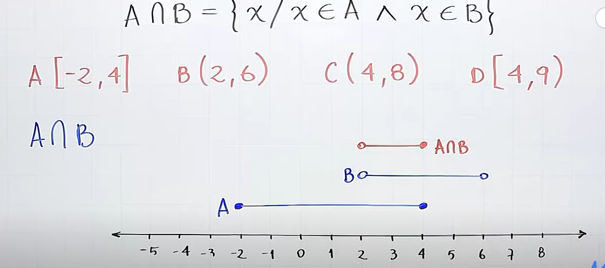 A∩B = {x/x ∈ A ∧ x ∈ B}
A [-2,4] B (2,6) C (4,8) D [4,9)
A∩B
A∩B
B
A
-5 -4 -3 -2 -1 0 1 2 3 4 5 6 7 8